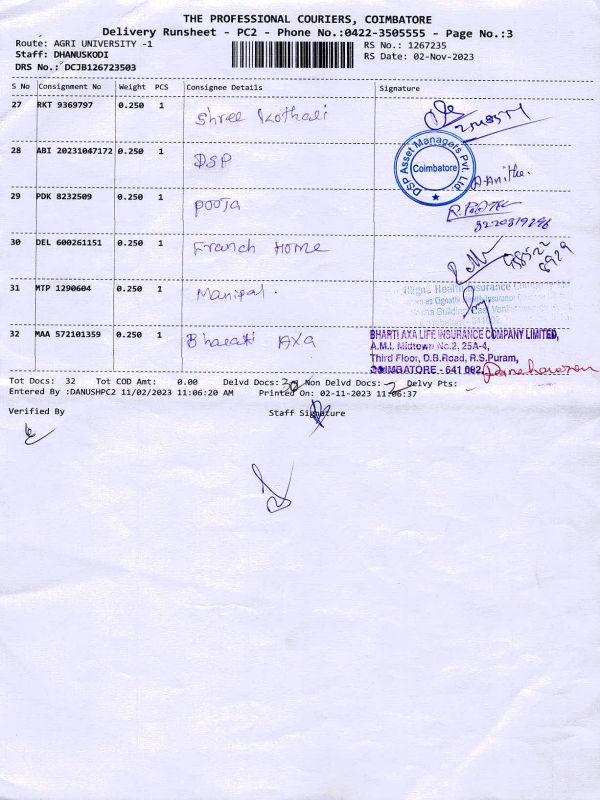 THE PROFESSIONAL COURIERS, COIMBATORE
Delivery Runsheet - PC2 - Phone No.:0422-3505555 - Page No.:3
Route: AGRI UNIVERSITY -1
RS No.: 1267235
Staff: DHANUSKODI
RS Date: 02-Nov-2023
DRS No.: DCJB126723503
S No Consignment No Weight PCS Consignee Details Signature
27 RKT 9369797 0.250 1 Shree Kothari
28 ABI 20231047172 0.250 1 DSP
DSP Asset Managers Pvt. Ltd
Coimbatore
D.Anitha.
29 PDK 8232509 0.250 1 pooja
8220819296
30 DEL 600261151 0.250 1 Franch Home
31 MTP 1290604 0.250 1 Manipal.
Health Insurance
32 MAA 572101359 0.250 1 Bharati AXA
BHARTI AXA LIFE INSURANCE COMPANY LIMITED,
A.M.I. Midtown No.2, 25A-4,
Third Floor, D.B.Road, R.S.Puram,
COIMBATORE - 641 002.
Tot Docs: 32 Tot COD Amt: 0.00 Delvd Docs: 30 Non Delvd Docs: 2 Delvy Pts:
Entered By :DANUSHPC2 11/02/2023 11:06:20 AM Printed On: 02-11-2023 11:06:37
Verified By
Staff Signature